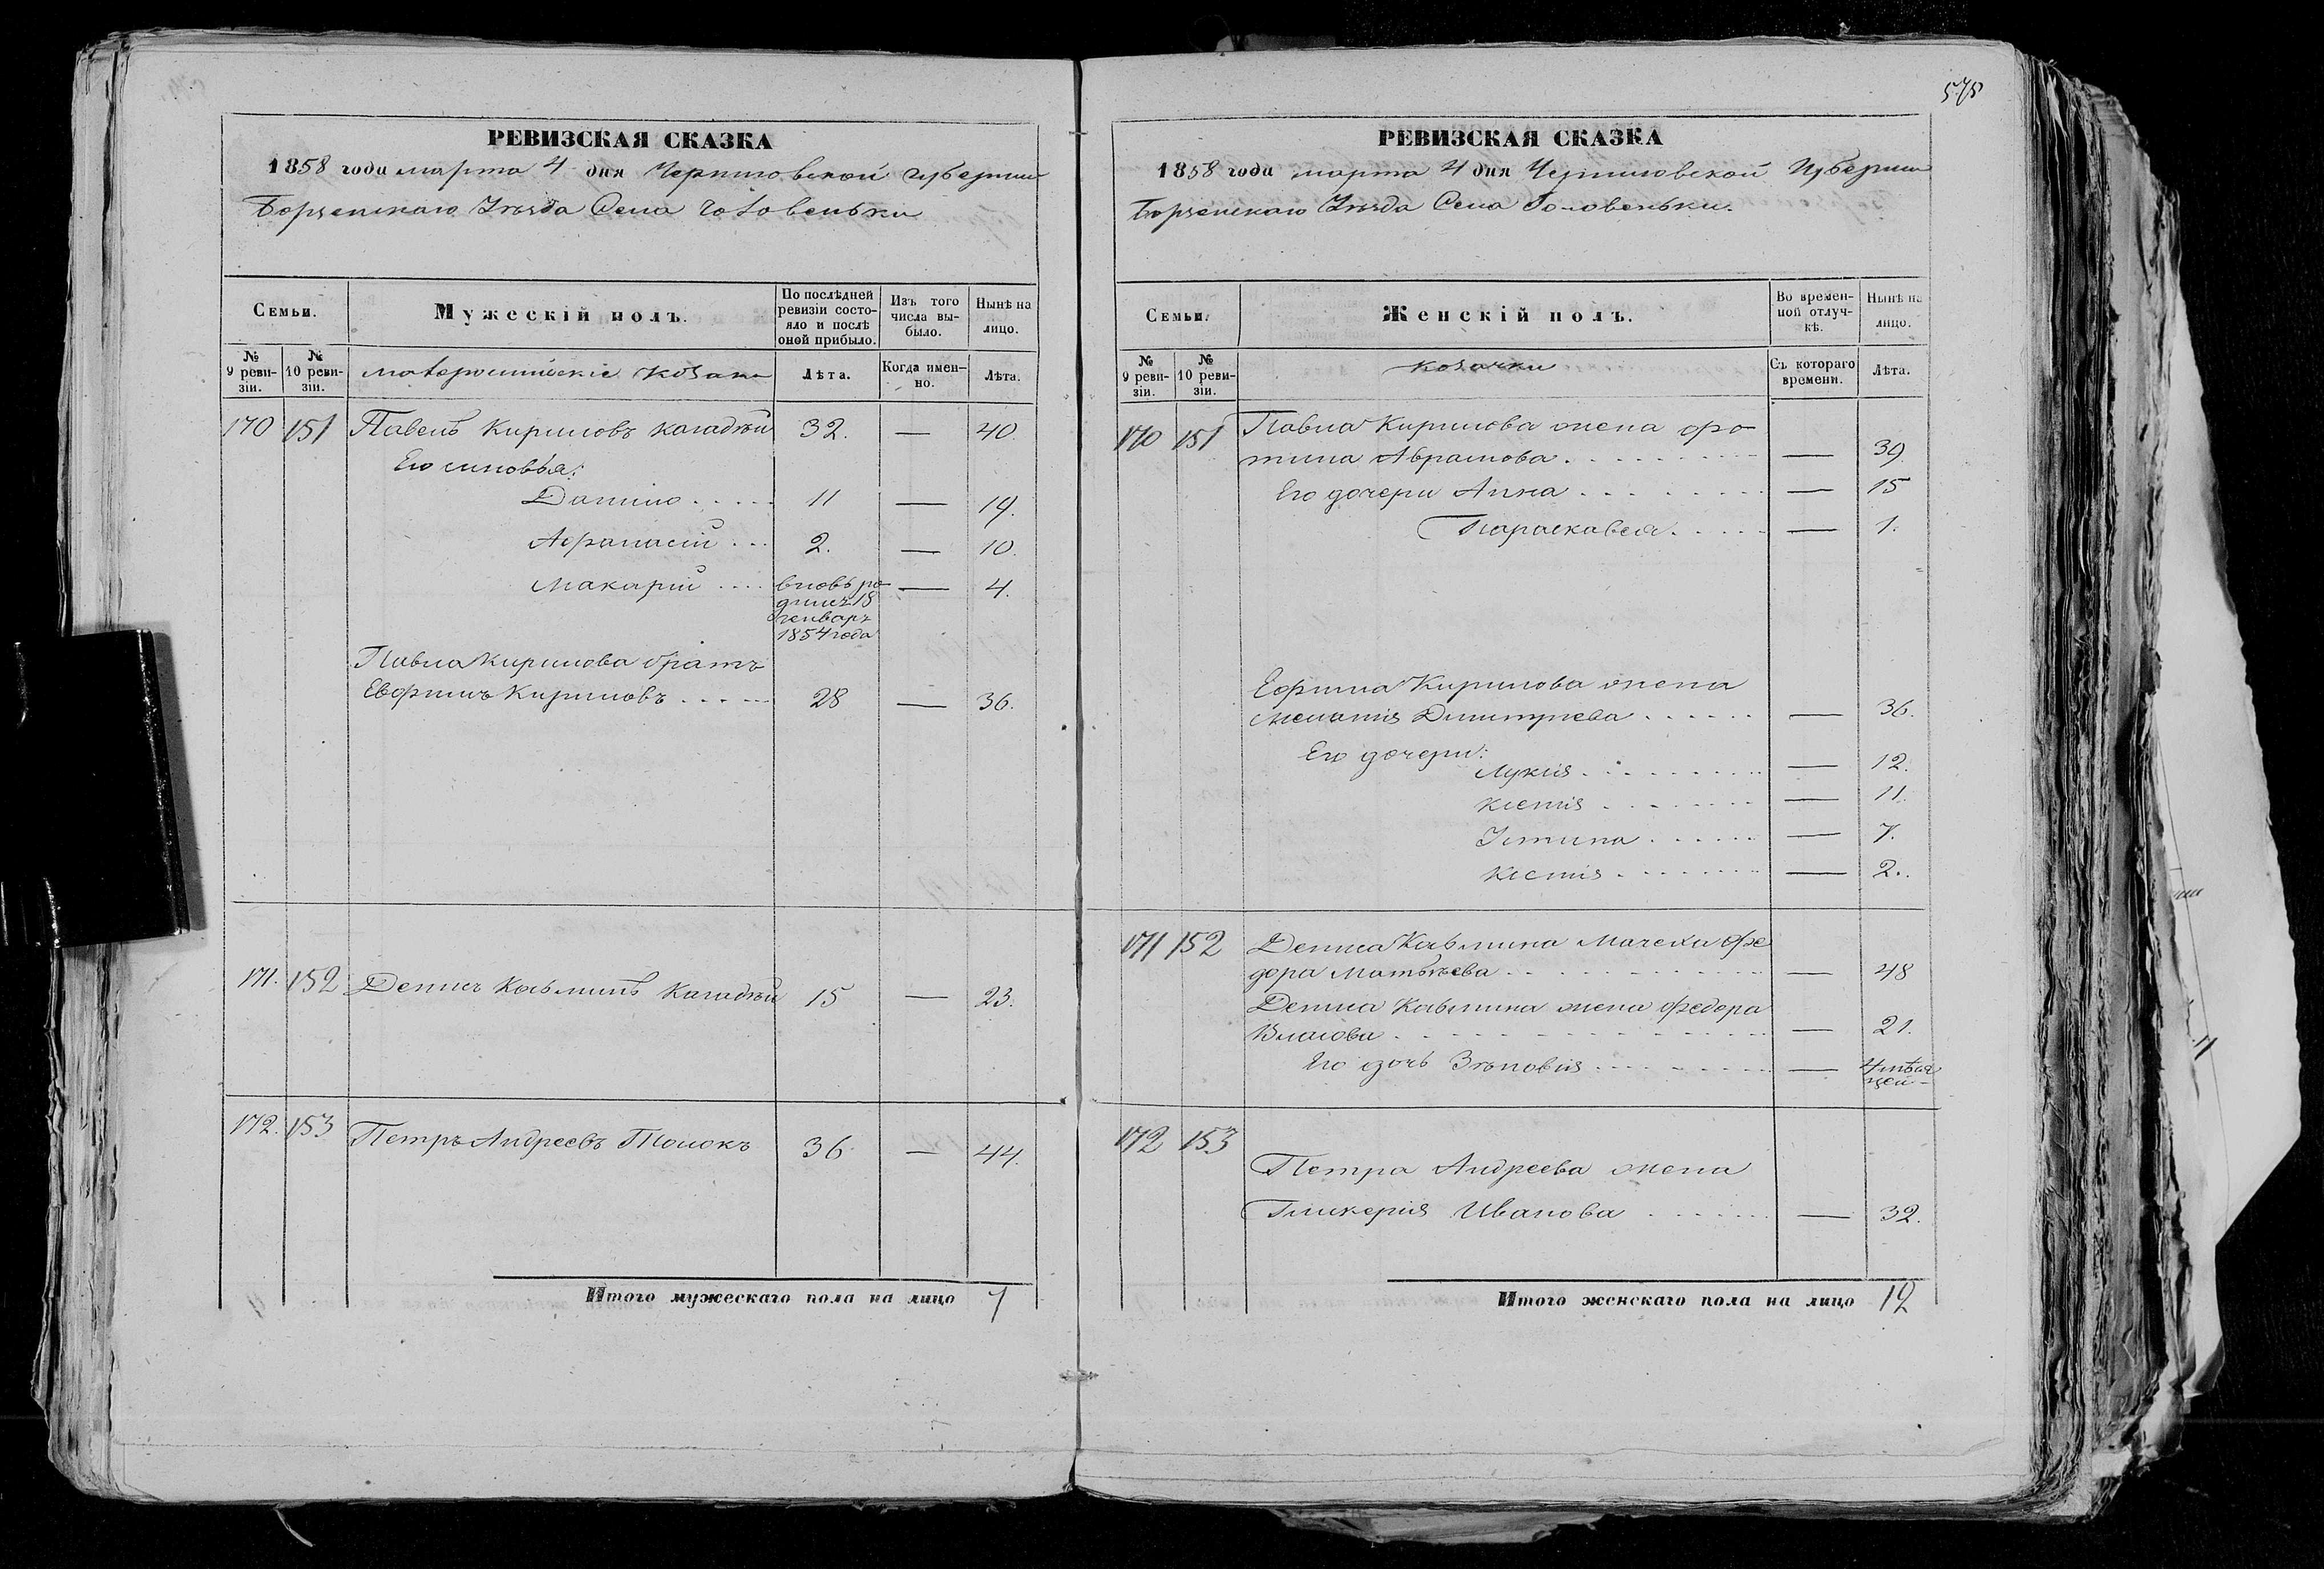 575
РЕВИЗСКАЯ СКАЗКА
1858 года марта 4 дня Черниговской губернии
Борзенскаго Уезда Села Головеньки
Семьи.
Мужескій полъ.
По послѣдней ревизіи состояло и послѣ оной прибыло.
Изъ того числа выбыло.
Нынѣ на лицо.
№ 9 ревизіи.
№ 10 ревизіи.
малороссійскіе козаки
Лѣта.
Когда именно.
Лѣта.
170 151 Павелъ Кириловъ 32. — 40.
Его синовья:
Данило . . . . . 11 — 19.
Афанасій . . . 2. — 10.
Макарій . . . . вновь ро- — 4.
18
генваря
1854 года
Павла Кирилова братъ
Евфимъ Кириловъ . . . . . 28 — 36.
171. 152 Денисъ Козьминъ 15 — 23.
172. 153 Петръ Андреевъ 36 — 44.
Итого мужескаго пола на лицо 7
РЕВИЗСКАЯ СКАЗКА
1858 года марта 4 дня Черниговской Губернии
Борзенскаго Уезда Села Головеньки.
Семьи.
Женскій полъ.
Во временной отлучкѣ.
Нынѣ на лицо.
№ 9 ревизіи.
№ 10 ревизіи.
козачки
Съ котораго времени.
Лѣта.
170 151 Павла Кирилова жена фо-
тина Абрамова . . . . . . . . . — 39
Его дочери Анна . . . . . . . . — 15
Параскавея . . . . . — 1.
Ефима Кирилова жена
Меланія Димитріева . . . . . . — 36.
Его дочери:
Лукія . . . . . . . . . — 12.
Ксенія . . . . . . . . — 11.
Устина . . . . . . — 7.
Ксенія . . . . . . . . — 2.
171 152 Дениса Козьмина Мачеха Фе
дора Матвѣева . . . . . . . . . . . . — 48
Дениса Козьмина жена Федора
Власова . . . . . . . . . . . . . . — 21.
Его дочь Зѣновія . . . . . . . . . — 4 мѣся
цей
172 153
Петра Андреева жена
Гликерія Иванова . . . . . . — 32.
Итого женскаго пола на лицо 12